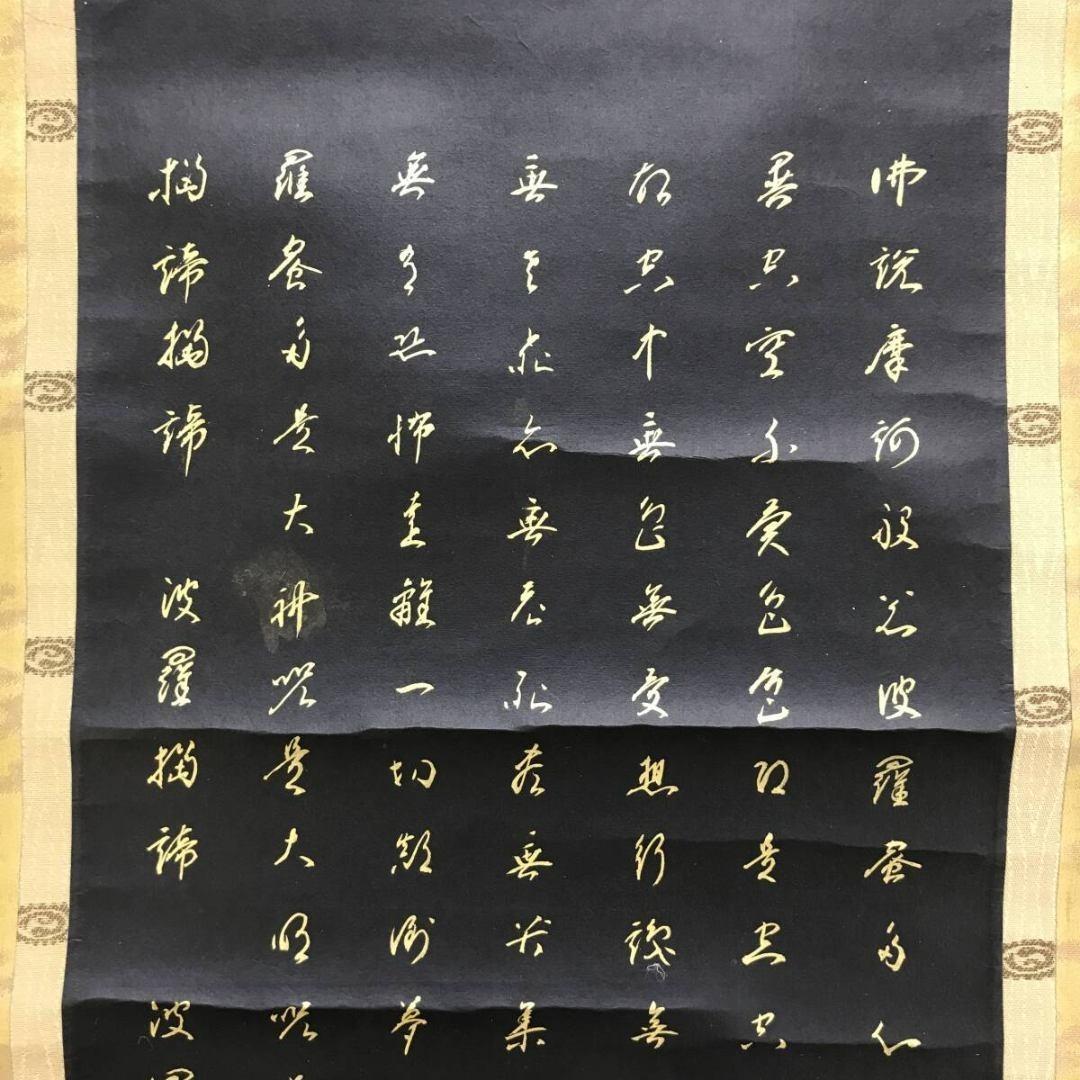 佛說摩訶般若波羅蜜多心
異空空不異色色即是空空
故空中無色無受想行識無
無老死亦無老死盡無苦集
無有恐怖遠離一切顛倒夢
羅蜜多是大神咒是大明咒
揭諦揭諦 波羅揭諦 波羅